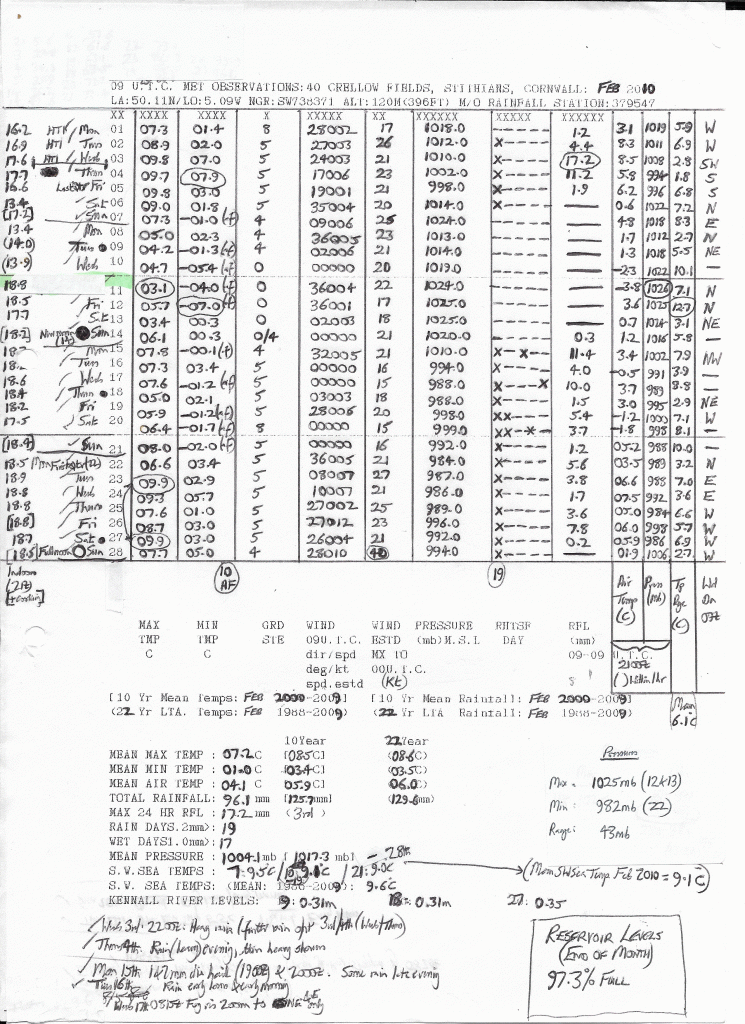 09 U.T.C. MET OBSERVATIONS: 40 CRELLOW FIELDS, STITHIANS, CORNWALL: FEB 2010
LA:50.11N/LO:5.09W NGR:SW738371 ALT:120M(396FT) M/O RAINFALL STATION:379547
XX XXXX XXXX X XXXXX XX XXXXXX XXXXX XXXXXX
16.2 HTI Mon 01 07.3 01.4 8 28002 17 1018.0 ------ 1.2 3.1 1019 5.9 W
16.9 HTI Tues 02 08.9 02.0 5 27003 26 1012.0 X----- 4.4 8.3 1011 6.9 W
17.6 HTI Weds 03 09.8 07.0 5 24003 21 1010.0 X----- 17.2 8.5 1008 2.8 SW
17.7 Thurs 04 09.7 07.9 5 17006 23 1002.0 X----- 11.2 5.8 994 1.8 S
16.6 Fri 05 09.8 03.0 5 19001 21 998.0 X----- 1.9 6.2 996 6.8 S
13.4 Sat 06 09.0 01.8 5 35004 20 1014.0 — 0.6 1022 7.2 N
[17.2] Sun 07 07.3 -01.0(f) 4 09006 25 1024.0 — 4.8 1018 8.3 E
13.4 Mon 08 05.0 02.3 4 36005 23 1013.0 — 1.7 1012 2.7 N
(14.0) Tues 09 04.2 -01.3(f) 4 02006 21 1014.0 — 1.3 1018 5.5 NE
(13.9) Weds 10 04.7 -05.4(af) 0 00000 20 1019.0 — -2.3 1022 10.1 —
18.8 11 03.1 -04.0(af) 0 36004 22 1024.0 — -3.8 1026 7.1 N
18.5 Fri 12 05.7 -07.0(af) 0 36001 17 1025.0 — 3.6 1025 12.7 N
17.7 Sat 13 03.4 00.3 0 02003 18 1025.0 — 0.7 1024 3.1 NE
[18.2] New moon Sun 14 06.1 00.3 0/4 00000 21 1020.0 0.3 1.2 1016 5.8 —
Mon 15 07.8 -00.1(f) 4 32005 21 1010.0 X--X--- 11.4 3.4 1002 7.9 NW
18.4 Tues 16 07.3 03.4 5 00000 16 994.0 X----- 4.0 -0.5 991 3.9 —
18.6 Weds 17 07.6 -01.2(af) 5 00000 15 988.0 X----X 10.0 3.7 989 8.8 —
18.4 Thurs 18 05.0 02.1 5 03003 18 988.0 X----- 1.5 3.0 995 2.9 NE
18.2 Fri 19 05.9 -01.2(af) 5 28006 20 998.0 XX---- 5.4 -1.2 1000 7.1 W
17.5 Sat 20 06.4 -01.7(f) 8 00000 15 999.0 XX--*-- 3.7 -1.8 998 8.1 —
[18.9] Sun 21 08.0 -02.0(f) 5 00000 16 992.0 X----- 1.2 05.2 988 10.0 —
18.5 Mon First qtr(22) 22 06.6 03.4 5 36005 21 984.0 X----- 5.6 03.5 989 3.2 N
18.9 Tues 23 09.9 02.9 5 08007 27 987.0 X----- 3.8 06.6 988 7.0 E
18.8 Weds 24 09.3 05.7 5 10007 21 986.0 X----- 1.7 07.5 992 3.6 E
18.8 Thurs 25 07.6 01.0 5 27002 25 989.0 X----- 3.6 05.0 984 6.6 W
[18.8] Fri 26 08.7 03.0 5 27012 23 996.0 X----- 7.8 06.0 998 5.7 W
18.7 Sat 27 09.9 03.0 5 26004 21 992.0 X----- 0.2 05.9 986 6.9 W
[18.5] Full moon Sun 28 07.7 05.0 4 28010 40 994.0 X----- 01.9 1006 2.7 W
10 AF
19
Air Temp (C) Press (mb) Tp Rge (C) Wd Dn 09z
MAX MIN GRD WIND WIND PRESSURE RHTSF RFL
TMP TMP STE 09U.T.C. ESTD (mb)M.S.L DAY (mm)
C C dir/spd MX TO 09-09 U.T.C.
deg/kt 00U.T.C. 2100z
spd.estd (Kt)
[10 Yr Mean Temps: FEB 2000-2009] [10 Yr Mean Rainfall: FEB 2000-2009]
(22 Yr LTA. Temps: FEB 1988-2009) (22 Yr LTA Rainfall: FEB 1988-2009)
Mean 6.1C
10Year 22Year
MEAN MAX TEMP : 07.2C [08.5C] (08.6C)
MEAN MIN TEMP : 01.0C [03.4C] (03.5C)
MEAN AIR TEMP : 04.1C [05.9C] (06.0C)
TOTAL RAINFALL: 96.1 mm [125.7mm] (129.6mm)
MAX 24 HR RFL : 17.2 mm (3rd)
RAIN DAYS.2mm>: 19
WET DAYS1.0mm>: 17
MEAN PRESSURE : 1004.1mb [1017.3 mb]
S.W.SEA TEMPS : 7: 9.5C / 9.1C / 21: 9.0C - 28th (Mean SW Sea Temp Feb 2010 = 9.1C)
S.W. SEA TEMPS: (MEAN: 1986-2009): 9.6C
KENNALL RIVER LEVELS: 9: 0.31m 18: 0.31m 27: 0.35
Pressure
Max: 1025mb (12+13)
Min: 982mb (22)
Range: 43mb
Weds 3rd: 2200z: Heavy rain (further rain opt 3rd/4th (Weds/Thurs)
Thurs 4th: Rain (heavy) evening, then heavy shower
Mon 15th 1-2mm dia hail (1900z) & 2000z. Some rain late evening
Tues 16th Rain early hours & early morning
Weds 17th 0815z Fog vis 200m to only
RESERVOIR LEVELS
(END OF MONTH)
97.3% FULL